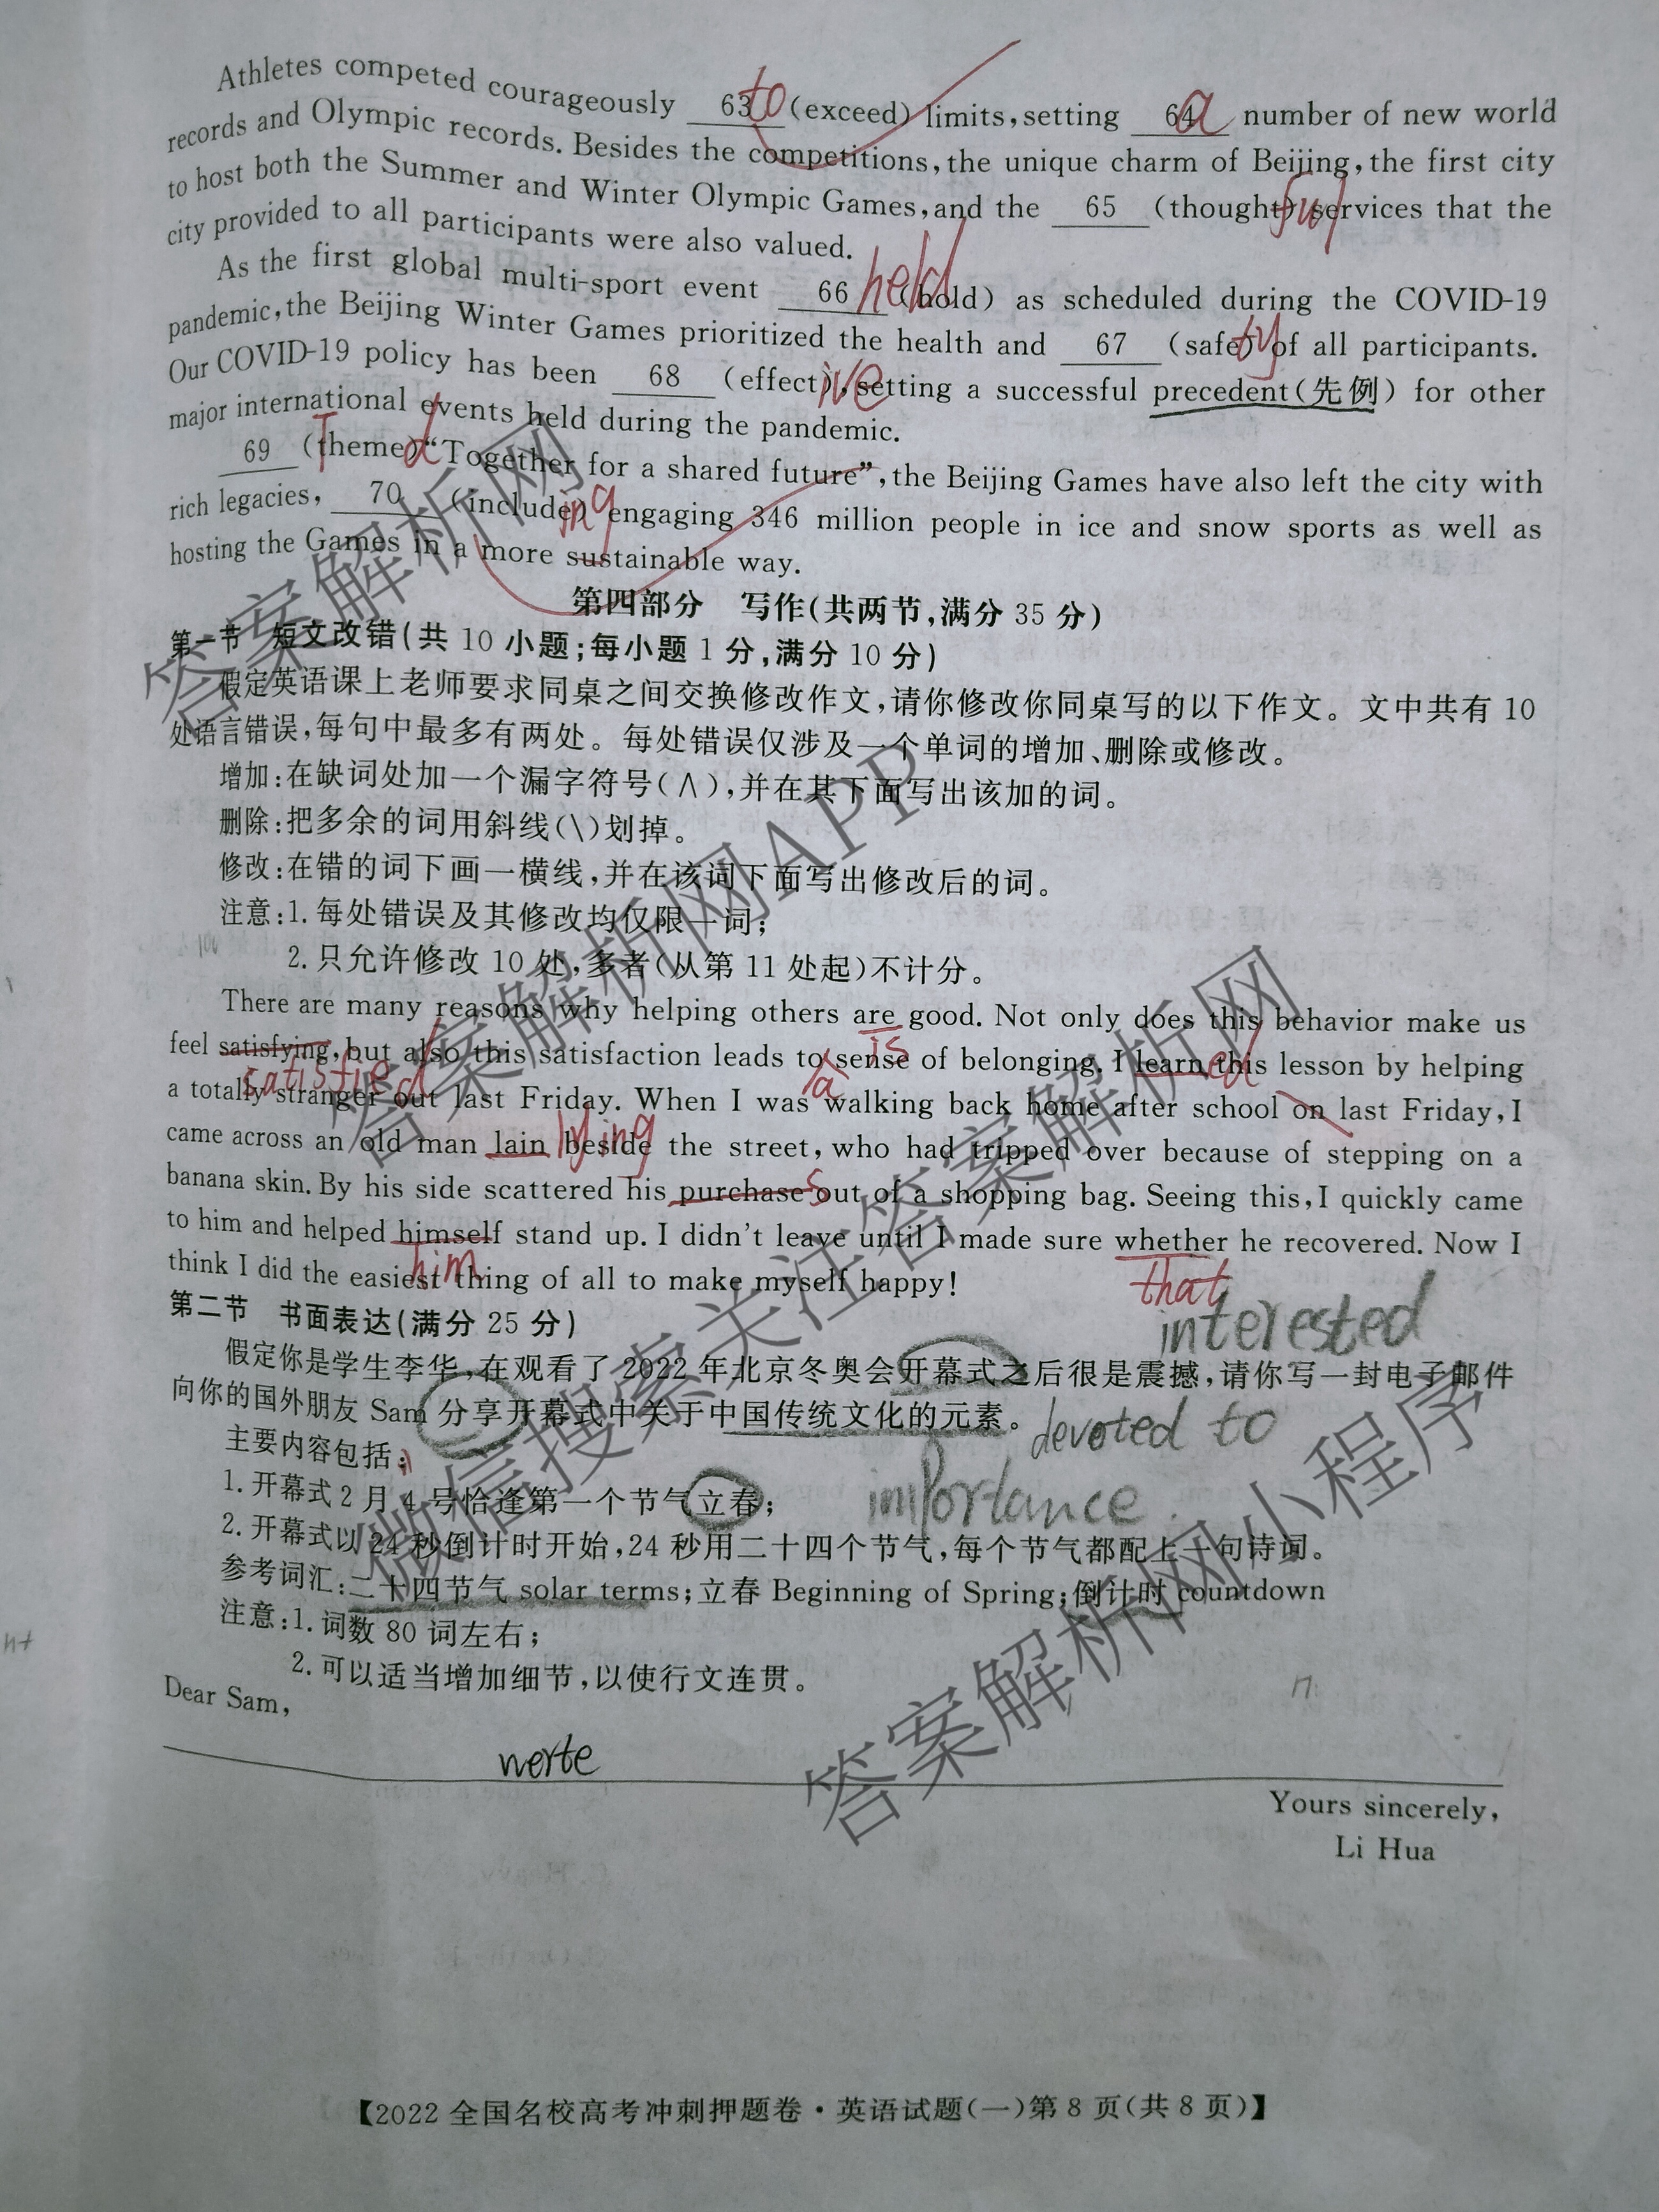 Athletes competed courageously 63 to (exceed) limits, setting 64 a number of new world
records and Olympic records. Besides the competitions, the unique charm of Beijing, the first city
to host both the Summer and Winter Olympic Games, and the 65 (thought) ful services that the
city provided to all participants were also valued.
As the first global multi-sport event 66 held (hold) as scheduled during the COVID-19
pandemic, the Beijing Winter Games prioritized the health and 67 (safe) ty of all participants.
Our COVID-19 policy has been 68 (effect) ive, setting a successful precedent(先例) for other
major international events held during the pandemic.
69 (theme) T d “Together for a shared future”, the Beijing Games have also left the city with
rich legacies, 70 (include) ing engaging 346 million people in ice and snow sports as well as
hosting the Games in a more sustainable way.
第四部分 写作(共两节,满分 35 分)
第一节 短文改错(共 10 小题;每小题 1 分,满分 10 分)
假定英语课上老师要求同桌之间交换修改作文,请你修改你同桌写的以下作文。文中共有 10
处语言错误,每句中最多有两处。每处错误仅涉及一个单词的增加、删除或修改。
增加:在缺词处加一个漏字符号(∧),并在其下面写出该加的词。
删除:把多余的词用斜线(\)划掉。
修改:在错的词下画一横线,并在该词下面写出修改后的词。
注意:1. 每处错误及其修改均仅限一词;
2. 只允许修改 10 处,多者(从第 11 处起)不计分。
There are many reasons why helping others are good. Not only does this behavior make us
is
feel satisfying, but also this satisfaction leads to sense of belonging. I learn this lesson by helping
satisfied a ed
a totally stranger out last Friday. When I was walking back home after school on last Friday, I
came across an old man lain beside the street, who had tripped over because of stepping on a
lying
banana skin. By his side scattered his purchase out of a shopping bag. Seeing this, I quickly came
s
to him and helped himself stand up. I didn't leave until I made sure whether he recovered. Now I
him that
think I did the easiest thing of all to make myself happy!
第二节 书面表达(满分 25 分)
interested
假定你是学生李华,在观看了 2022 年北京冬奥会开幕式之后很是震撼,请你写一封电子邮件
向你的国外朋友 Sam 分享开幕式中关于中国传统文化的元素。
devoted to
主要内容包括:
1. 开幕式 2 月 4 号恰逢第一个节气立春;
importance
2. 开幕式以 24 秒倒计时开始,24 秒用二十四个节气,每个节气都配上一句诗词。
参考词汇:二十四节气 solar terms;立春 Beginning of Spring;倒计时 countdown
注意:1. 词数 80 词左右;
2. 可以适当增加细节,以使行文连贯。
Dear Sam,
werte
Yours sincerely,
Li Hua
【2022 全国名校高考冲刺押题卷·英语试题(一)第 8 页(共 8 页)】
答案解析网
答案解析网APP
微信搜索关注答案解析网
答案解析网小程序